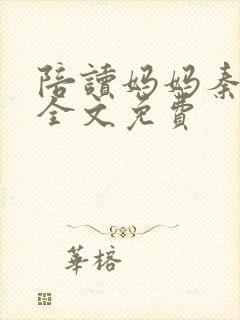 陪讀媽媽秦
全文免費
華榕